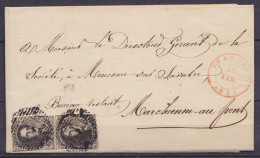 A Monsieur le Directeur Gérant de la
Société, à Monceau sur Sambre
Bureau restant,
Marchienne-au-pont